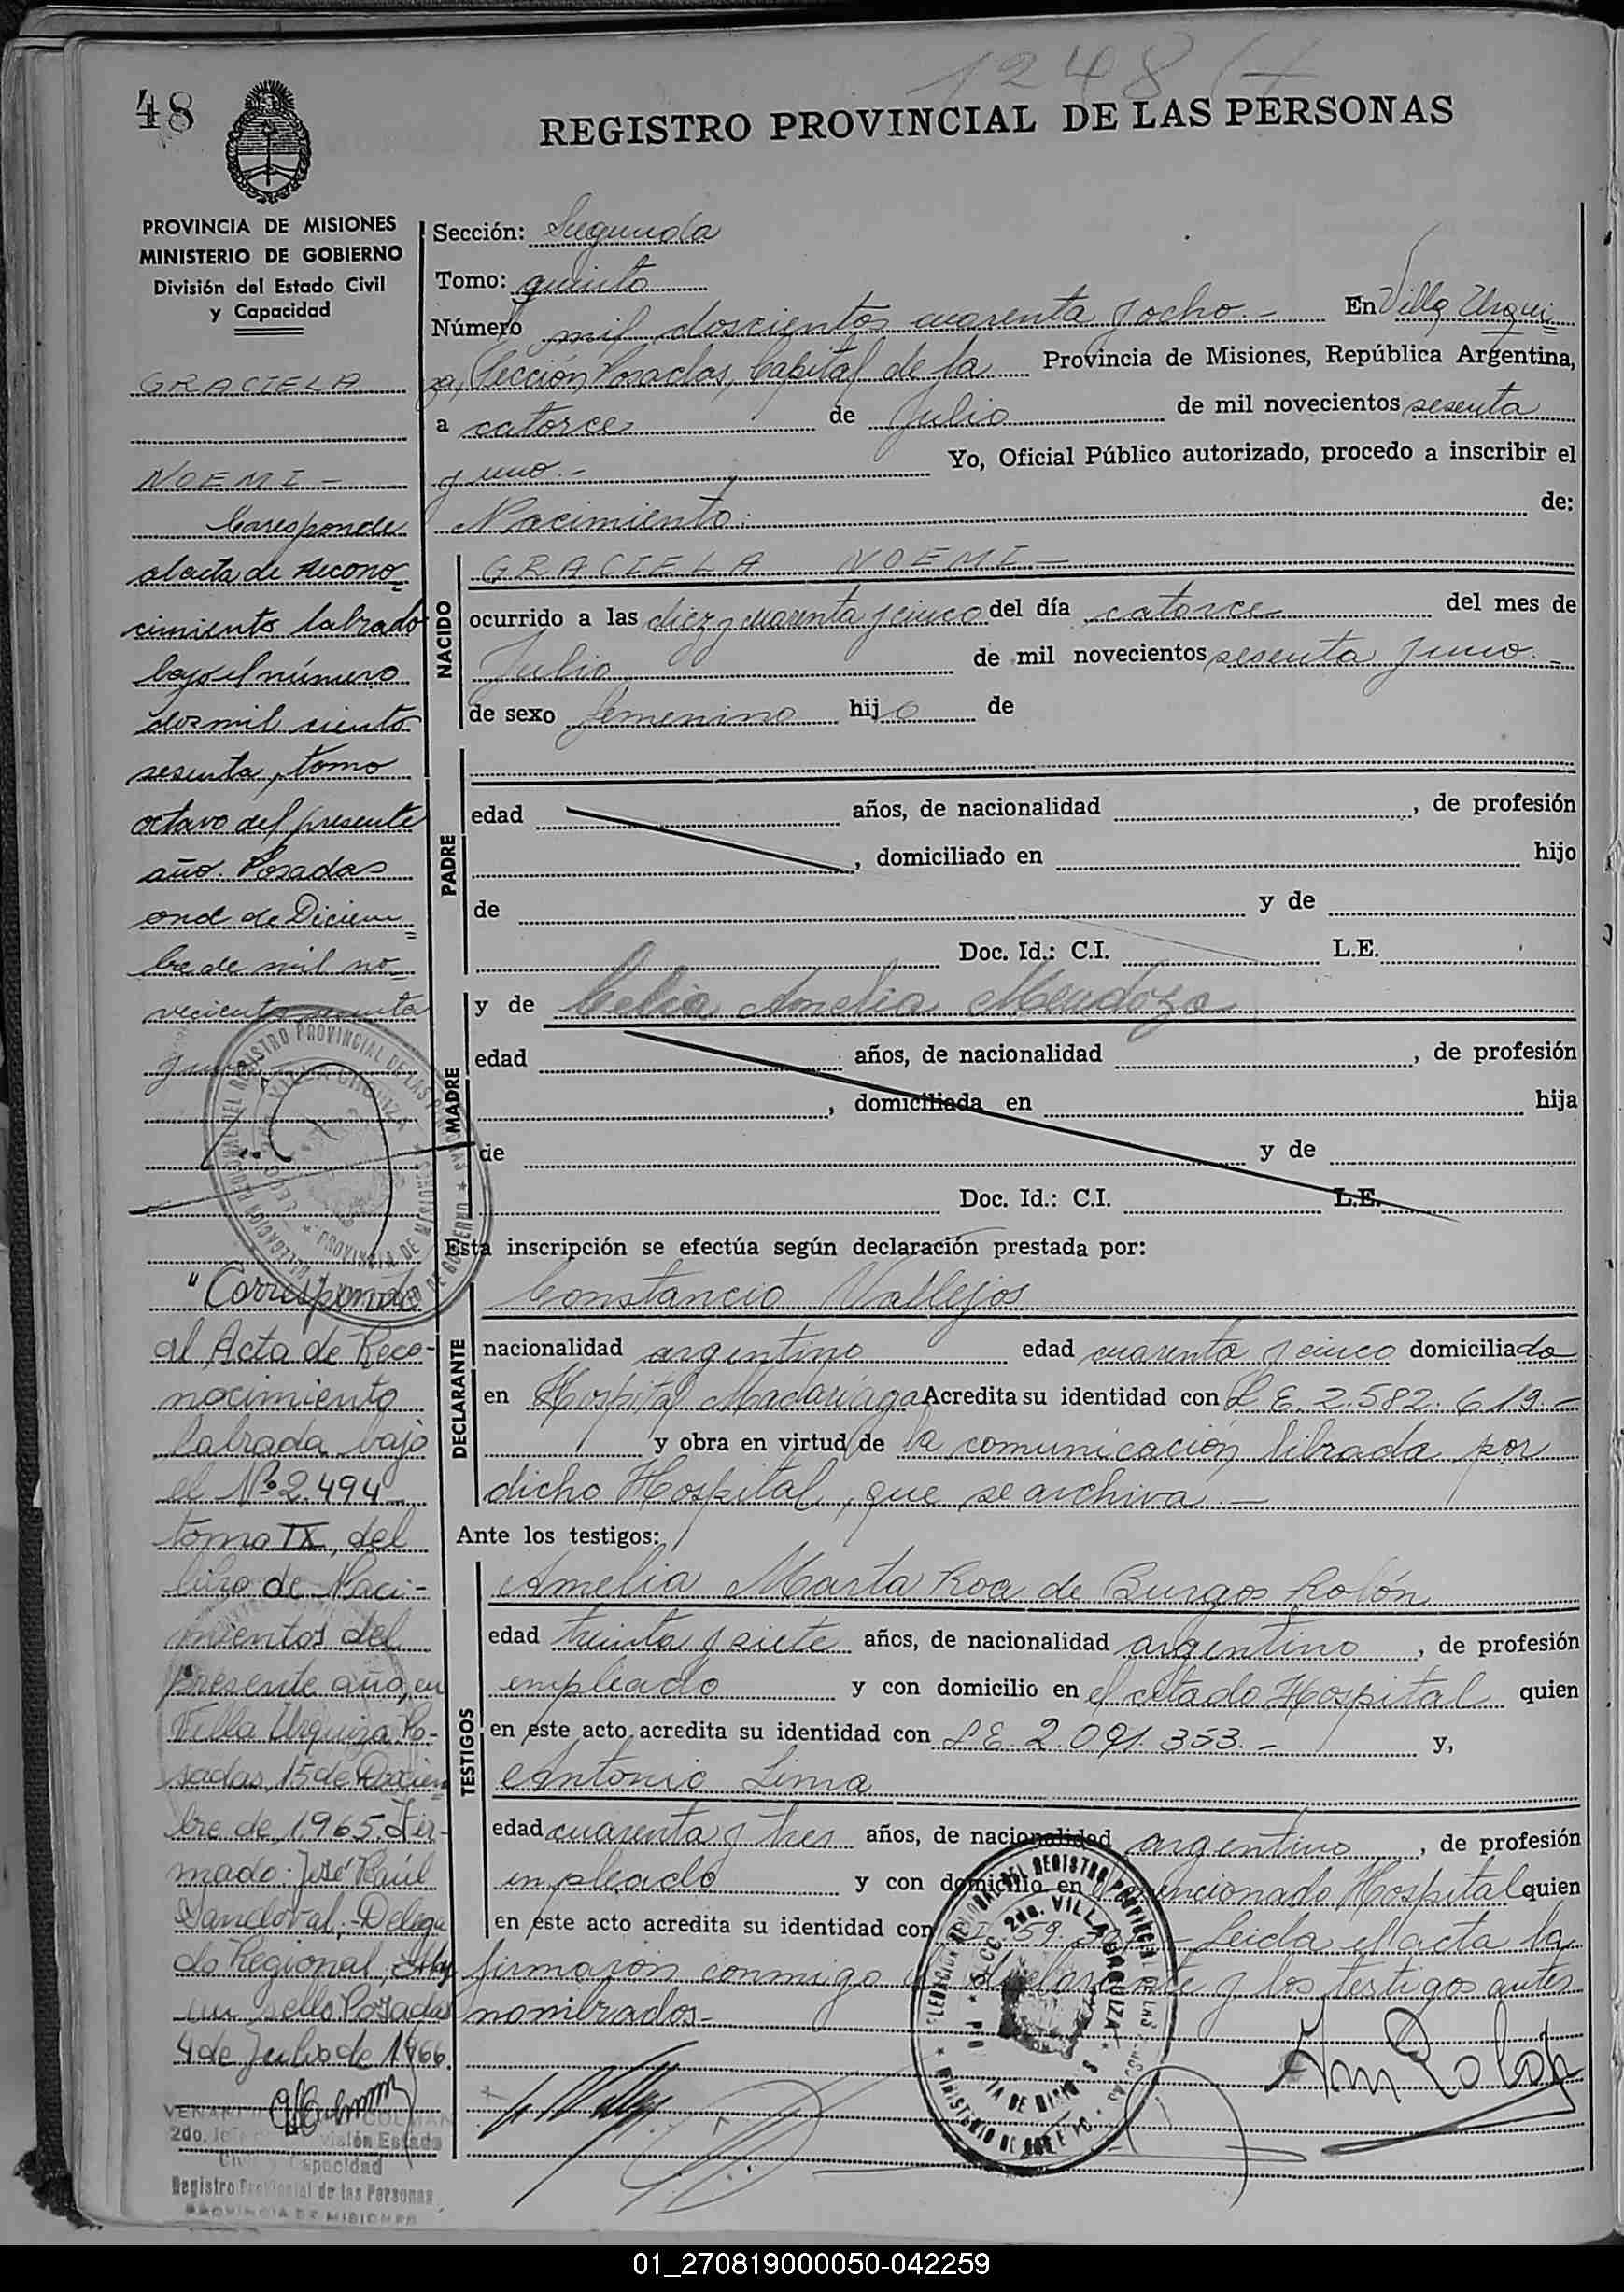 1248
48
REGISTRO PROVINCIAL DE LAS PERSONAS
PROVINCIA DE MISIONES
MINISTERIO DE GOBIERNO
División del Estado Civil
y Capacidad
GRACIELA
NOEMI -
Corresponde
al acta de Recono-
cimiento labrado
bajo el número
dos mil ciento
sesenta, tomo
octavo del presente
año. Posadas
once de Diciem=
bre de mil no-
vecientos sesenta
y uno.-
"Corresponde
al Acta de Reco-
nocimiento
labrada bajo
el Nº 2.494
tomo IX, del
libro de Naci-
mientos del
presente año, en
Villa Urquiza Po-
sadas, 15 de Diciem=
bre de 1965. Fir-
mado: José Raúl
Sandoval,-Delega
do Regional, Hay
un sello Posadas
4 de Julio de 1966.
2do. Jefe División Estado
Civil y Capacidad
Registro Provincial de las Personas
PROVINCIA DE MISIONES
Sección: Segunda
Tomo: quinto
Número mil doscientos cuarenta y ocho.- En Villa Urqui=
za, Sección Posadas, Capital de la Provincia de Misiones, República Argentina,
a catorce de Julio de mil novecientos sesenta
y uno.- Yo, Oficial Público autorizado, procedo a inscribir el
Nacimiento: de:
NACIDO
GRACIELA NOEMI-
ocurrido a las diez y cuarenta y cinco del día catorce del mes de
Julio de mil novecientos sesenta y uno.-
de sexo femenino hijo de
PADRE
edad años, de nacionalidad , de profesión
, domiciliado en hijo
de y de
Doc. Id.: C.I. L.E.
MADRE
y de Celia Amelia Mendoza
edad años, de nacionalidad , de profesión
, domiciliada en hija
de y de
Doc. Id.: C.I. L.E.
Esta inscripción se efectúa según declaración prestada por:
DECLARANTE
Constancio Vallejos
nacionalidad argentino edad cuarenta y cinco domiciliado
en Hospital Madariaga Acredita su identidad con L.E. 2.582.619.-
y obra en virtud de la comunicación librada por
dicho Hospital, que se archiva.-
Ante los testigos:
TESTIGOS
Amelia Marta Roa de Burgos Rolón
edad treinta y siete años, de nacionalidad argentino , de profesión
empleado y con domicilio en el citado Hospital quien
en este acto acredita su identidad con L.E. 2.091.353.- y,
Antonio Lima
edad cuarenta y tres años, de nacionalidad argentino , de profesión
empleado y con domicilio en mencionado Hospital quien
en este acto acredita su identidad con Leida el acta la
firmaron conmigo el declarante y los testigos antes
nombrados.-
01_270819000050-042259